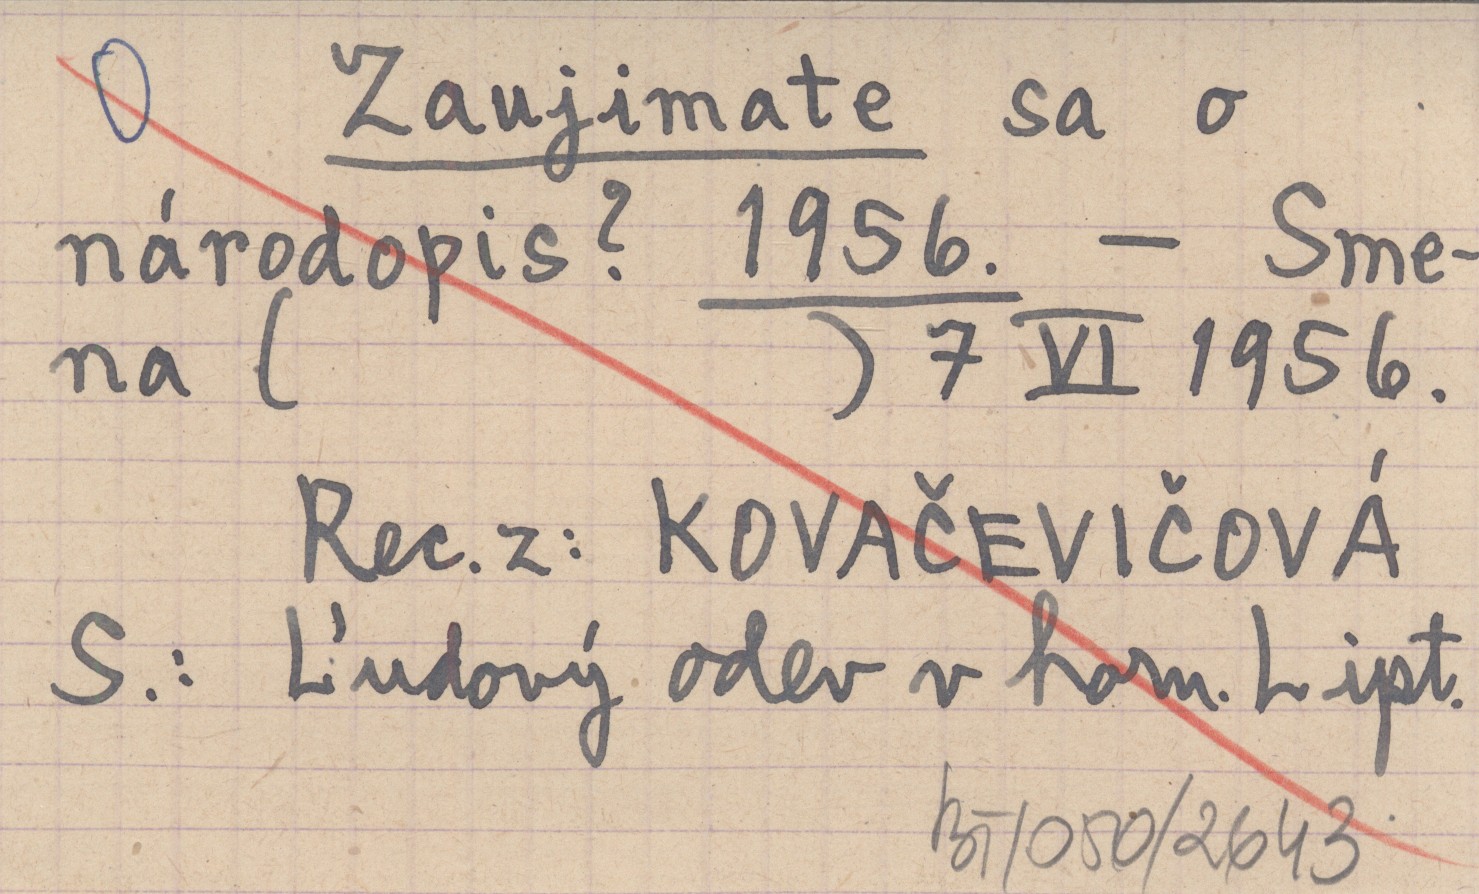 Zaujimate sa o
národopis? 1956. — Sme-
na ( ) 7 VI 1956.
Rec. z: KOVAČEVIČOVÁ
S.: Ľudový odev v horn. Lipt.
BT/050/2643